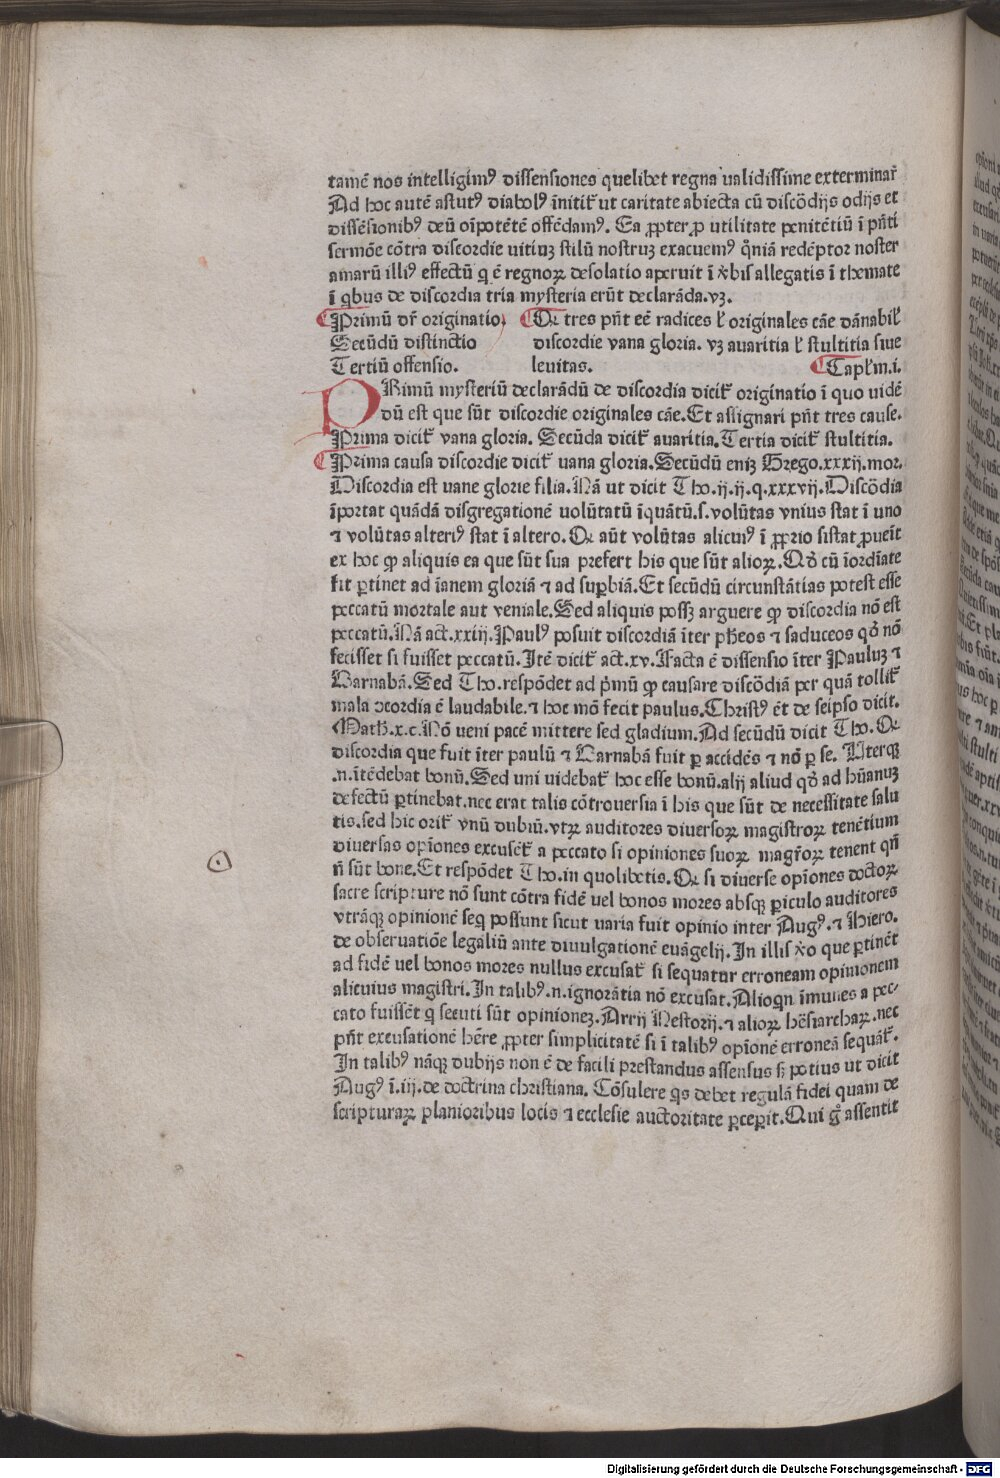 tamē nos intelligimꝰ dissensiones quelibet regna ualidissime exterminar̄
Ad hoc autē astutꝰ diabolꝰ īnitit᷑ ut caritate abiecta cū discōdijs odijs et
dissēsionibꝰ deū oīpotētē offēdamꝰ. Ea ꝓpter ꝓ utilitate penitētiū ī pn̄ti
sermōe cōtra discordie uitiuꝫ stilū nostruꝫ exacuemꝰ qm̄iā redēptor noster
amarū illiꝰ effectū q ē regnoꝝ desolatio aperuit ī v̄bis allegatis ī themate
ī qbus de discordia tria mysteria erūt declarāda.vꝫ.
Primū dr̄ originatio
Secūdū distinctio
Tertiū offensio.
Qꝛ tres pn̄t eē radices ł originales cāe dānabił
discordie vana gloria. vꝫ auaritia ł stultitia siue
leuitas.
Capłm.i.
PRimū mysteriū declarādū de discordia dicit᷑ originatio ī quo uidē
dū est que sūt discordie originales cāe. Et assignari pn̄t tres cause.
Prima dicit᷑ vana gloria. Secūda dicit᷑ auaritia. Tertia dicit᷑ stultitia.
Prima causa discordie dicit᷑ uana gloria. Secūdū eniꝫ Grego.xxxij.mor.
Discordia est uane glorie filia. Nā ut dicit Tho.ij.ij.q.xxxvij. Discōdia
īportat quādā disgregationē uolūtatū īquātū.s.volūtas vnius stat ī uno
⁊ volūtas alteriꝰ stat ī altero. Qꝛ aūt volūtas alicuiꝰ ī ꝓprio sistat ꝓueīt
ex hoc ꝙ aliquis ea que sūt sua prefert his que sūt alioꝝ. Qd̓ cū īordīate
fit ꝑtinet ad īanem gloriā ⁊ ad suꝑbiā. Et secūdū circunstātias potest esse
peccatū mortale aut veniale. Sed aliquis possꝫ arguere ꝙ discordia nō est
peccatū. Nā act.xxiij. Paulꝰ posuit discordiā īter ph̄eos ⁊ saduceos qd̓ nō
fecisset si fuisset peccatū. Itē dicit᷑ act.xv. Facta ē dissensio īter Pauluꝫ ⁊
Barnabā. Sed Tho. respōdet ad pͥmū ꝙ causare discōdiā per quā tollit᷑
mala ɔcordia ē laudabile. ⁊ hoc mō fecit paulus. Christꝰ ēt de seipso dicit.
Math̄.x.c. Nō ueni pacē mittere sed gladium. Ad secūdū dicit Tho. Qꝛ
discordia que fuit īter paulū ⁊ Barnabā fuit ꝑ accidēs ⁊ nō ꝑ se. Uterqꝫ
.n. ītēdebat bonū. Sed uni uidebat᷑ hoc esse bonū. alij aliud qd̓ ad hūanuꝫ
defectū ꝑtinebat. nec erat talis cōtrouersia ī his que sūt de necessitate salu
tis. sed hic orit᷑ vnū dubiū. vtꝝ auditores diuersoꝝ magistroꝝ tenētium
diuersas opīones excusēt᷑ a peccato si opiniones suoꝝ magr̄oꝝ tenent qn̄
n̄ sūt bone. Et respōdet Tho. in quolibetis. Qꝛ si diuerse opīones doctoꝝ
sacre scripture nō sunt cōtra fidē uel bonos mores absqꝫ ꝑiculo auditores
vtrāqꝫ opinionē seq possunt sicut uaria fuit opinio inter Augꝰ. ⁊ Hiero.
de obseruatiōe legaliū ante diuulgationē euāgelij. In illis v̄o que ꝑtinēt
ad fidē uel bonos mores nullus excusat᷑ si sequatur erroneam opinionem
alicuius magistri. In talibꝰ.n. ignorātia nō excusat. Alioqn īmunes a pec
cato fuissēt q secuti sūt opinioneꝫ. Arrij Nestorij. ⁊ alioꝝ hēsiarchaꝝ. nec
pn̄t excusationē hēre ꝓpter simplicitatē si ī talibꝰ opīonē erroneā sequāt᷑.
In talibꝰ nāqꝫ dubijs non ē de facili prestandus assensus sꝫ potius ut dicit
Augꝰ ī.iij. de doctrina christiana. Cōsulere qs debet regulā fidei quam de
scripturaꝝ planioribus locis ⁊ ecclesie auctoritate ꝑceꝑit. Qui gͦ assentit
Digitalisierung gefördert durch die Deutsche Forschungsgemeinschaft - DFG